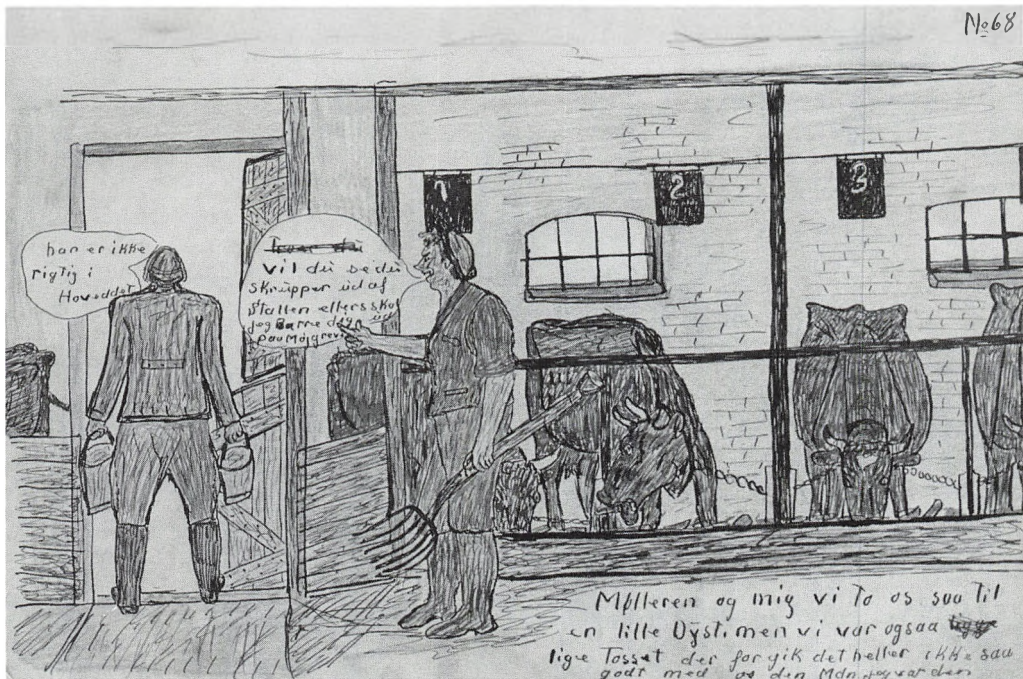 No 68
1
2
3
han er ikke
rigtig i
Hoveddet
vil du se du
skrupper ud af
Stallen ellers skal
jeg Barre
paa Møjgreven
Mølleren og mig vi to os saa til
en lille Dystimen vi var ogsaa
lige Tosset der for gik det heller ikke saa
godt med os den